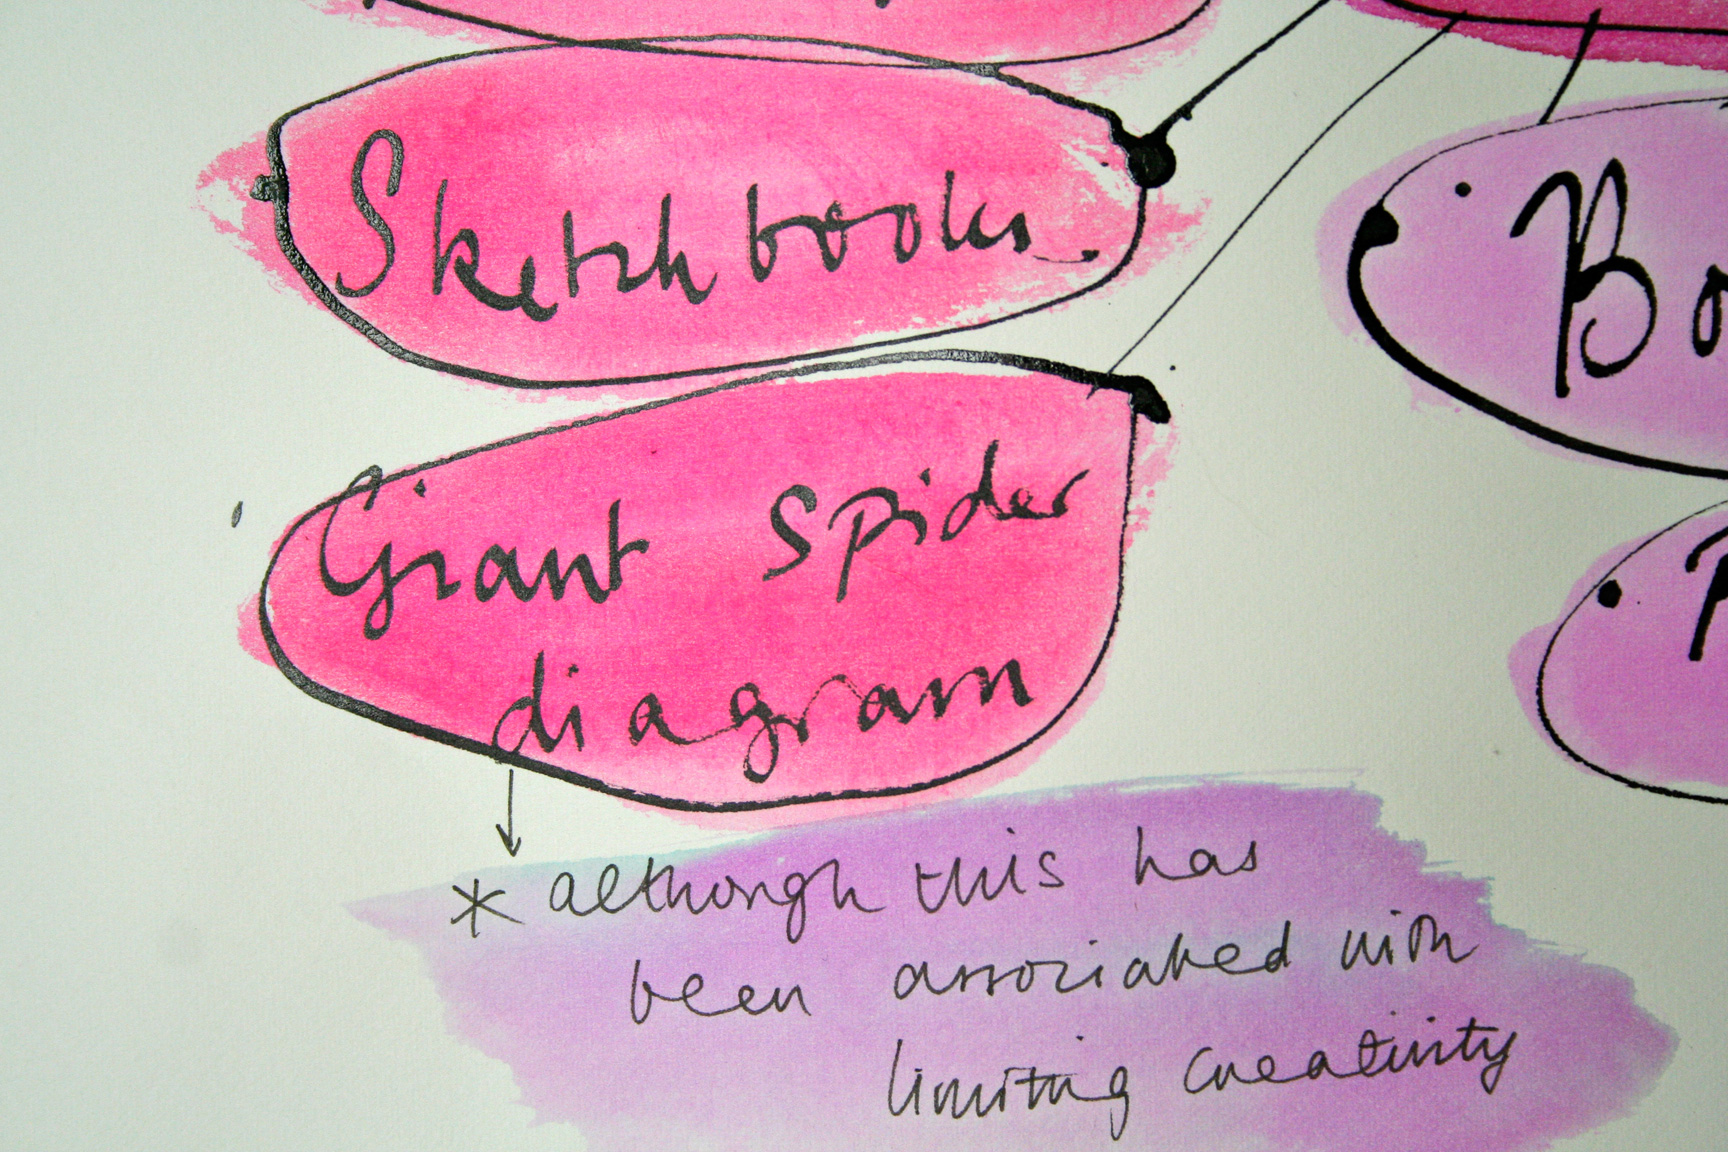 Sketchbooks
Giant Spider
diagram
* although this has
been associated with
limiting creativity
Bo